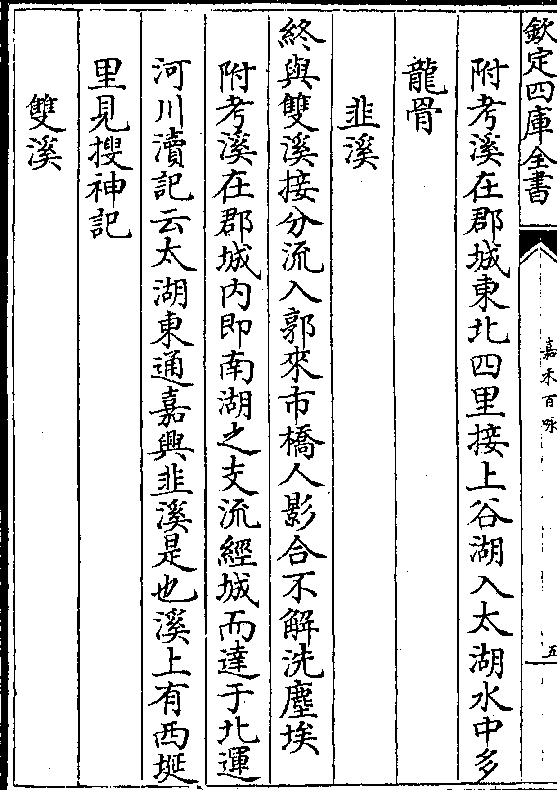 欽定四庫全書
嘉禾百咏
五
附考溪在郡城東北四里接上谷湖入太湖水中多
龍骨
韭溪
終與雙溪接分流入郭來市橋人影合不解洗塵埃
附考溪在郡城內即南湖之支流經城而達于北運
河川瀆記云太湖東通嘉興韭溪是也溪上有西埏
里見搜神記
雙溪